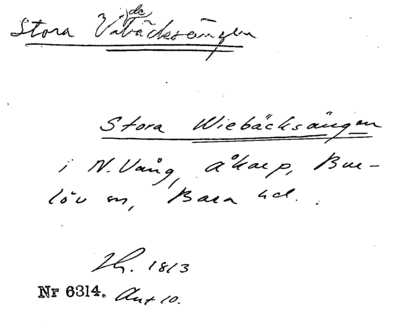 Stora Videbäcksängen
Stora Wiebäcksängen
i N. Vång, Åkarp, Bur-
löv sn, Bara hd.
Lh. 1813
Nr 6314. Akt 10.